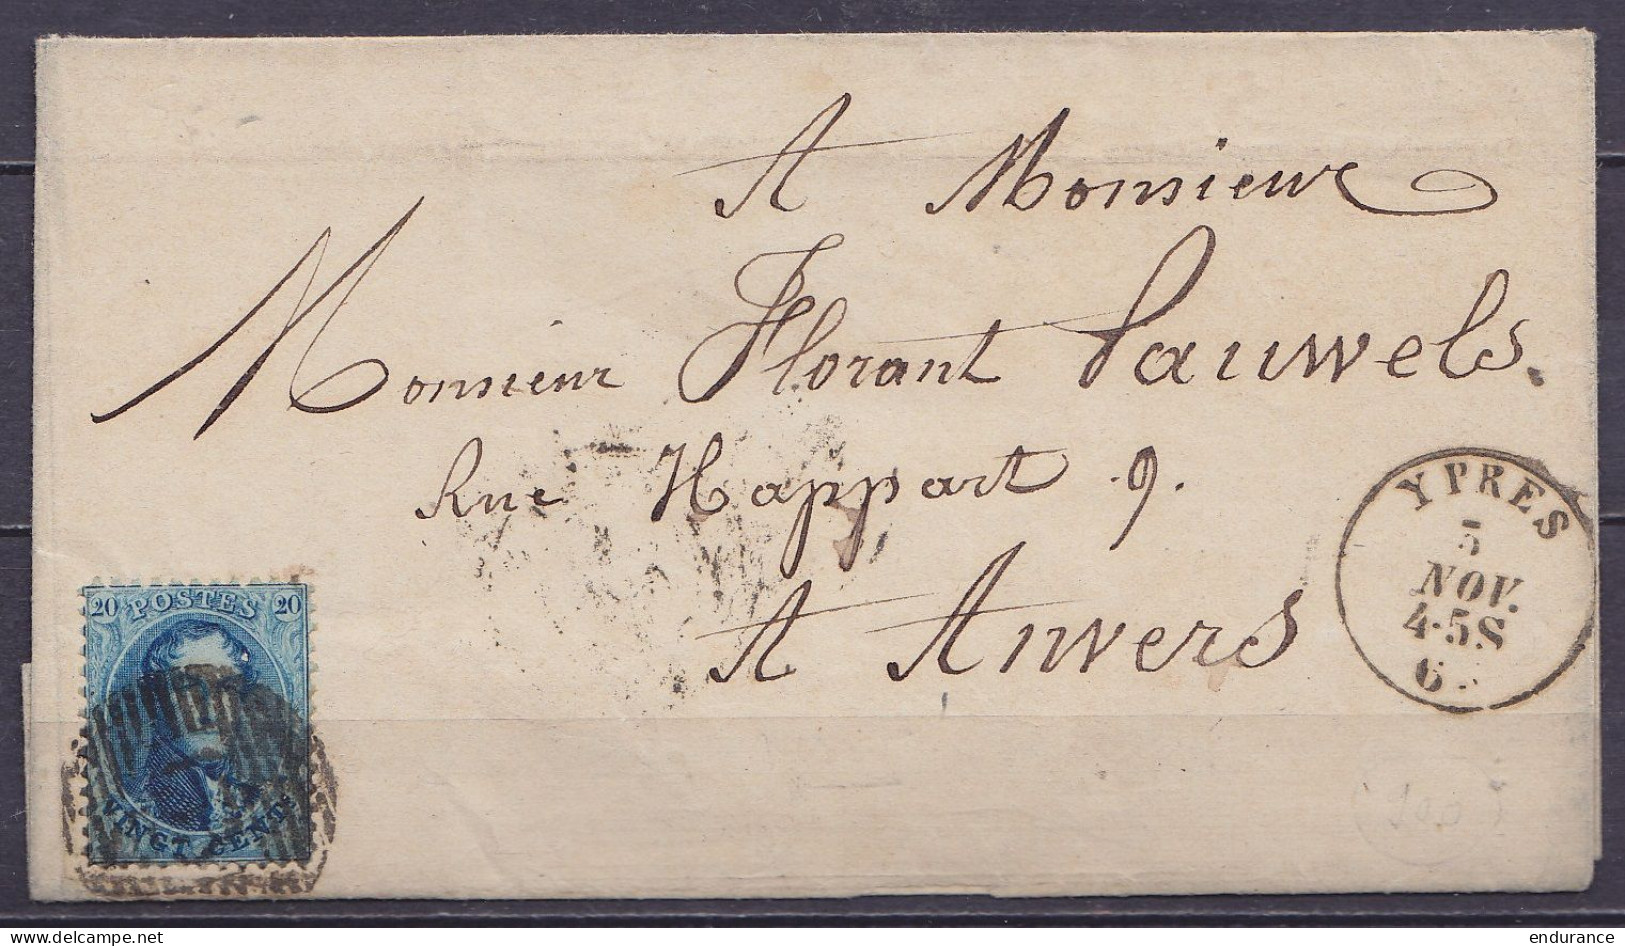 A Monsieur
Monsieur Florant Pauwels.
Rue Happart 9.
A Anvers
YPRES
5
NOV.
4-5S
6
20 POSTES 20
VINGT CENTS
delcampe.net
endurance